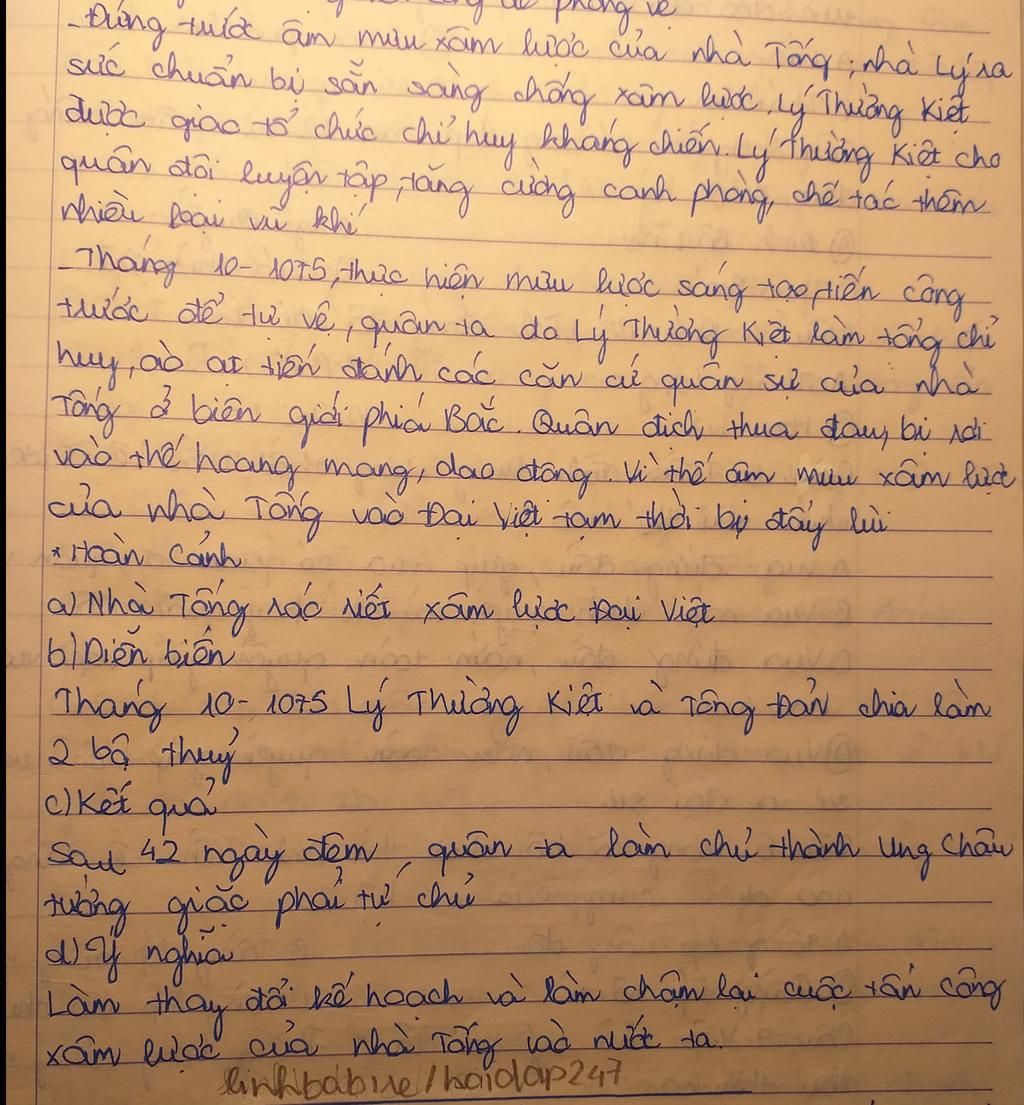 để phòng vệ
- Đứng trước âm mưu xâm lược của nhà Tống, nhà Lý ra
sức chuẩn bị sẵn sàng chống xâm lược. Lý Thường Kiệt
được giao tổ chức chỉ huy kháng chiến. Lý Thường Kiệt cho
quân đội luyện tập, tăng cường canh phòng, chế tác thêm
nhiều loại vũ khí
- Tháng 10-1075, thực hiện mưu lược sáng tạo, tiến công
trước để tự vệ, quân ta do Lý Thường Kiệt làm tổng chỉ
huy, ào ạt tiến đánh các căn cứ quân sự của nhà
Tống ở biên giới phía Bắc. Quân địch thua đau, bị rơi
vào thế hoang mang, dao động. Vì thế âm mưu xâm lược
của nhà Tống vào Đại Việt tạm thời bị đẩy lùi
* Hoàn Cảnh
a) Nhà Tống ráo riết xâm lược Đại Việt
b) Diễn biến
Tháng 10-1075 Lý Thường Kiệt và Tông Đản chia làm
2 bộ thuỷ
c) Kết quả
Sau 42 ngày đêm, quân ta làm chủ thành Ung Châu
tướng giặc phải tự chủ
d) Ý nghĩa
Làm thay đổi kế hoạch và làm chậm lại cuộc tấn công
xâm lược của nhà Tống vào nước ta.
linhbabire/hoidap247